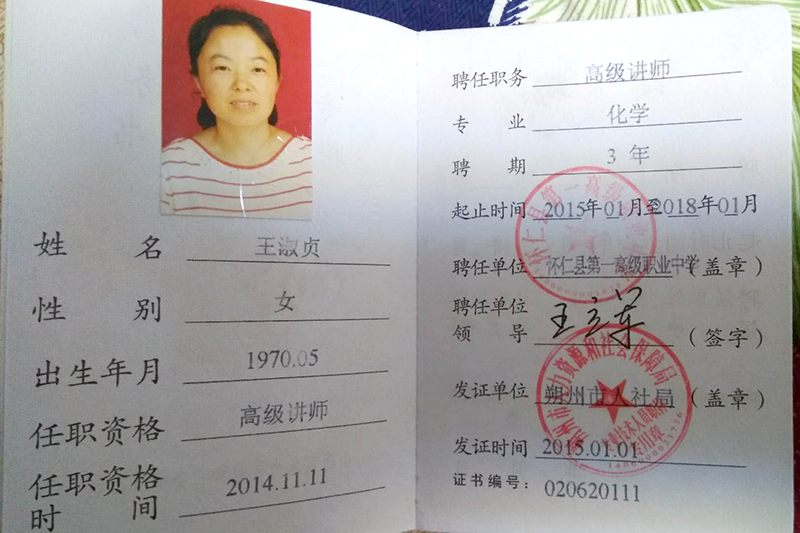 姓名 王淑贞
性别 女
出生年月 1970.05
任职资格 高级讲师
任职资格时间 2014.11.11
聘任职务 高级讲师
专业 化学
聘期 3 年
起止时间 2015年01月至2018年01月
聘任单位 怀仁县第一高级职业中学(盖章)
聘任单位
领导 王立军 (签字)
发证单位 朔州市人社局 (盖章)
发证时间 2015.01.01
证书编号: 020620111